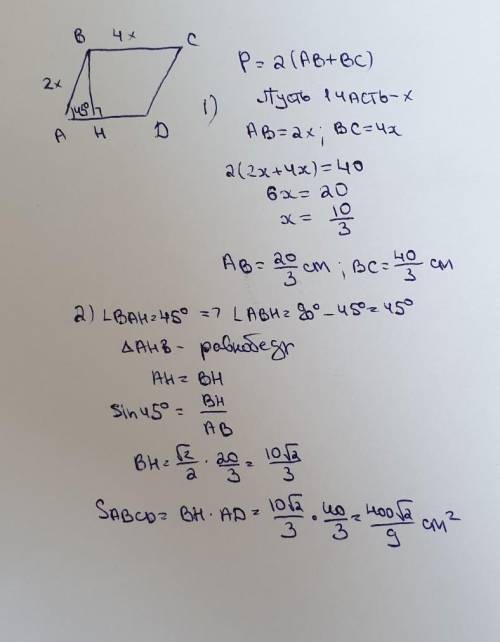 B 4x C
2x
45°
A H D
P = 2(AB+BC)
1) Пусть 1 часть - x
AB = 2x; BC = 4x
2(2x+4x) = 40
6x = 20
x = 10/3
AB = 20/3 см; BC = 40/3 см
2) ∠BAH = 45° => ∠ABH = 90° - 45° = 45°
△AHB - равнобедр
AH = BH
sin 45° = BH/AB
BH = √2/2 · 20/3 = 10√2/3
SABCD = BH · AD = 10√2/3 · 40/3 = 400√2/9 см²